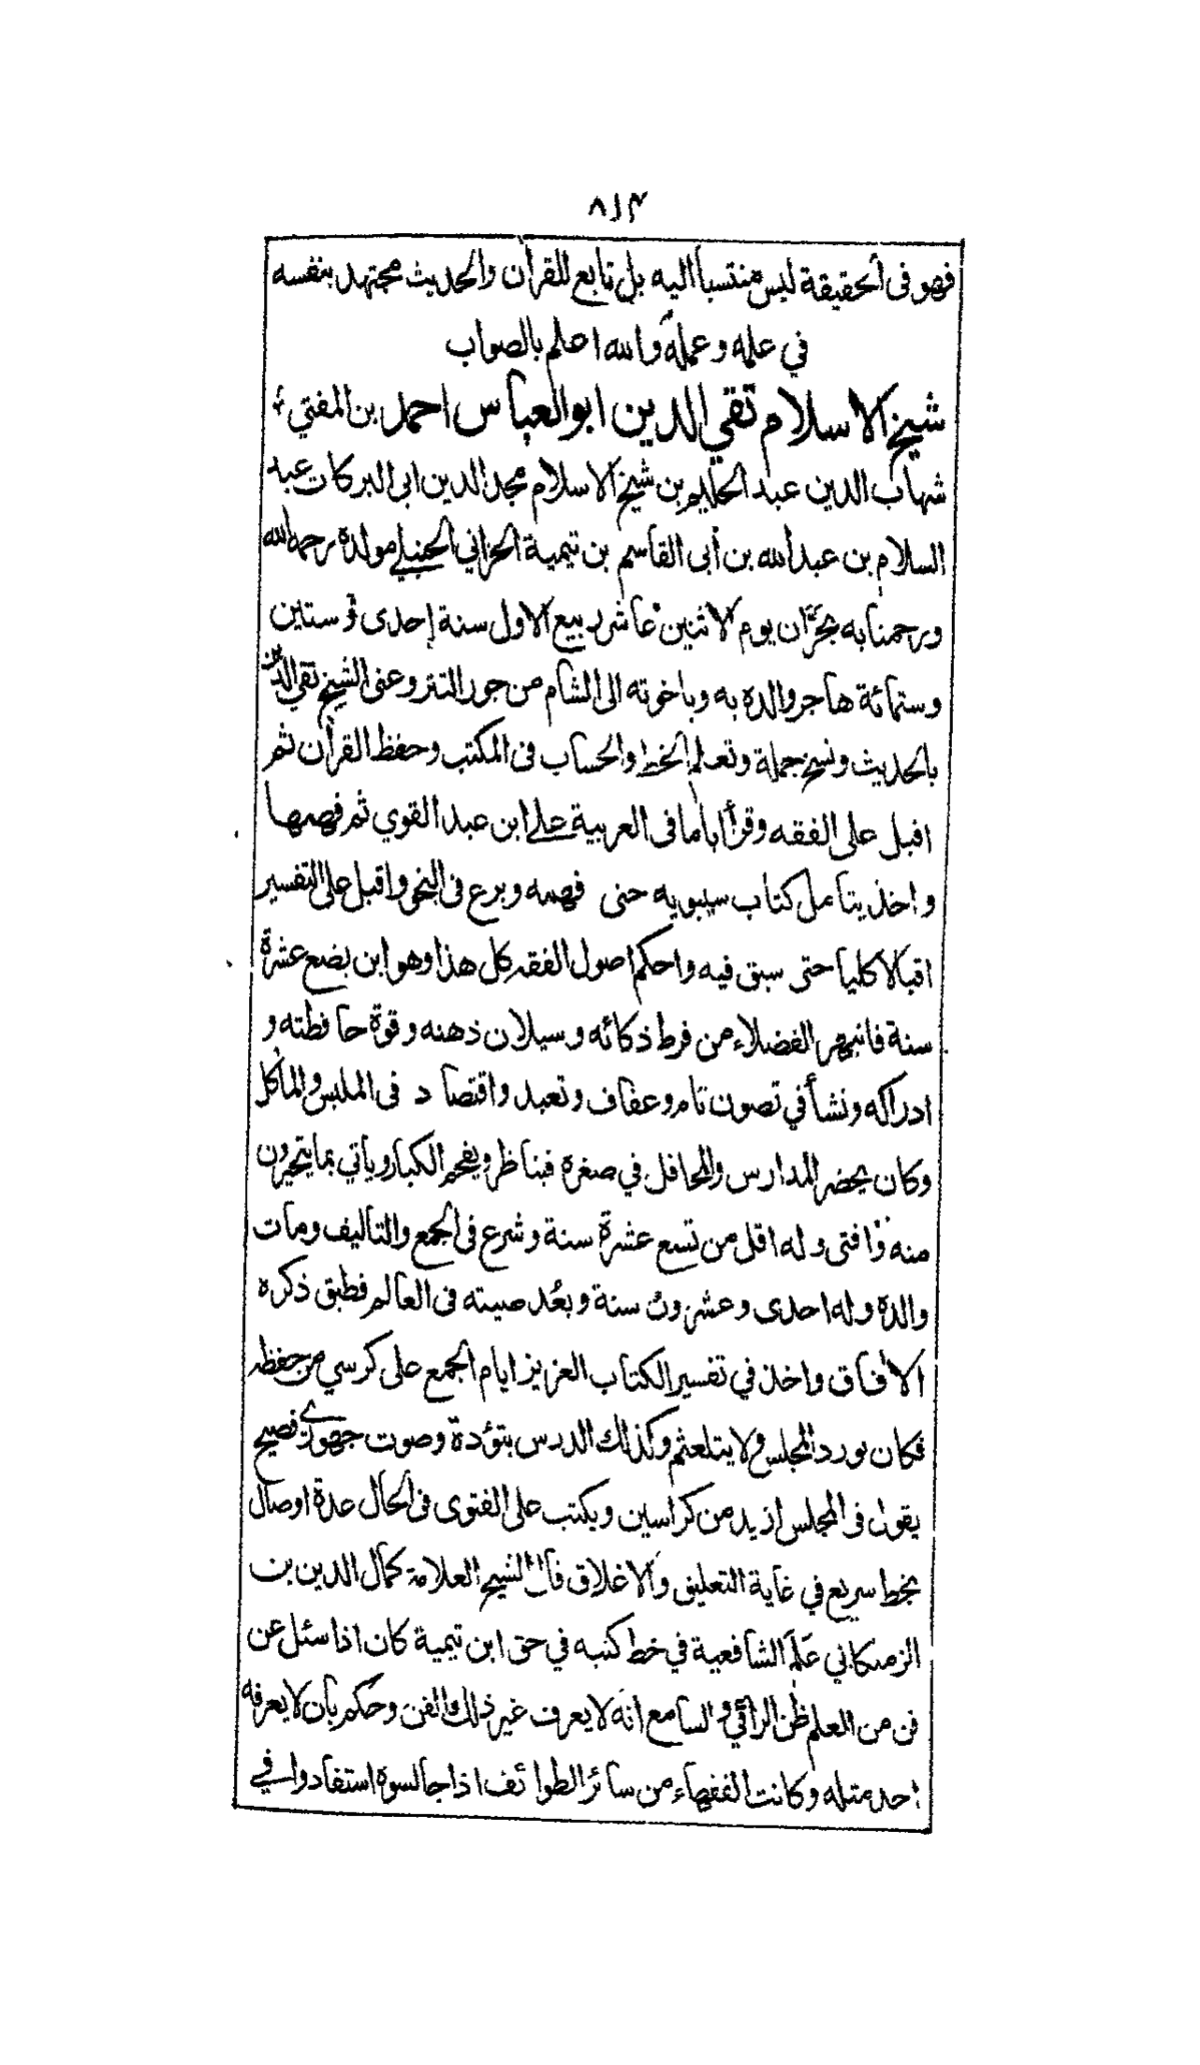 ٨١٤
فهو فى الحقيقة ليس منتسبا اليه بل تابع للقرآن والحديث مجتهد بنفسه
في علمه وعمله والله اعلم بالصواب
شيخ الاسلام تقي الدين ابوالعباس احمد بن المفتي
شهاب الدين عبد الحليم بن شيخ الاسلام مجد الدين ابى البركات عبد
السلام بن عبد الله بن أبى القاسم بن تيمية الحراني الحنبلي مولده رحمه الله
ورحمنا به بحَرَّان يوم الاثنين عاشر ربيع الاول سنة إحدى وستين
وستمائة هاجر والده به وباخوته الى الشام من جور التتر وعنى الشيخ تقي الدين
بالحديث ونسخ جملة وتعلم الخط والحساب فى المكتب وحفظ القرآن ثم
اقبل على الفقه وقرأ اياما فى العربية على ابن عبد القوي ثم فهمها
واخذ يتأمل كتاب سيبويه حتى فهمه وبرع فى النحو واقبل على التفسير
اقبالا كليا حتى سبق فيه واحكم اصول الفقه كل هذا وهو ابن بضع عشرة
سنة فانبهر الفضلاء من فرط ذكائه وسيلان ذهنه وقوة حافظته و
ادراكه ونشأ في تصون تام وعفاف وتعبد واقتصاد فى الملبس والمأكل
وكان يحضر المدارس والمحافل في صغره فيناظر ويفحم الكبار ويأتي بما يتحيرون
منه وافتى وله اقل من تسع عشرة سنة وشرع فى الجمع والتاليف ومات
والده وله احدى وعشرون سنة وبعُد صيته فى العالم فطبق ذكره
الآفاق واخذ في تفسير الكتاب العزيز ايام الجمع على كرسي من حفظه
فكان يورد المجلس ولا يتلعثم وكذلك الدرس بتؤدة وصوت جهوري فصيح
يقول فى المجلس ازيد من كراسين ويكتب على الفتوى فى الحال عدة اوصال
بخط سريع في غاية التعليق والاغلاق قال الشيخ العلامة كمال الدين بن
الزملكاني عَلَم الشافعية في خط كتبه في حق ابن تيمية كان اذا سئل عن
فن من العلم ظن الرائي والسامع انه لا يعرف غير ذلك الفن وحكم بأن لا يعرفه
احد مثله وكانت الفقهاء من سائر الطوائف اذا جالسوه استفادوا في